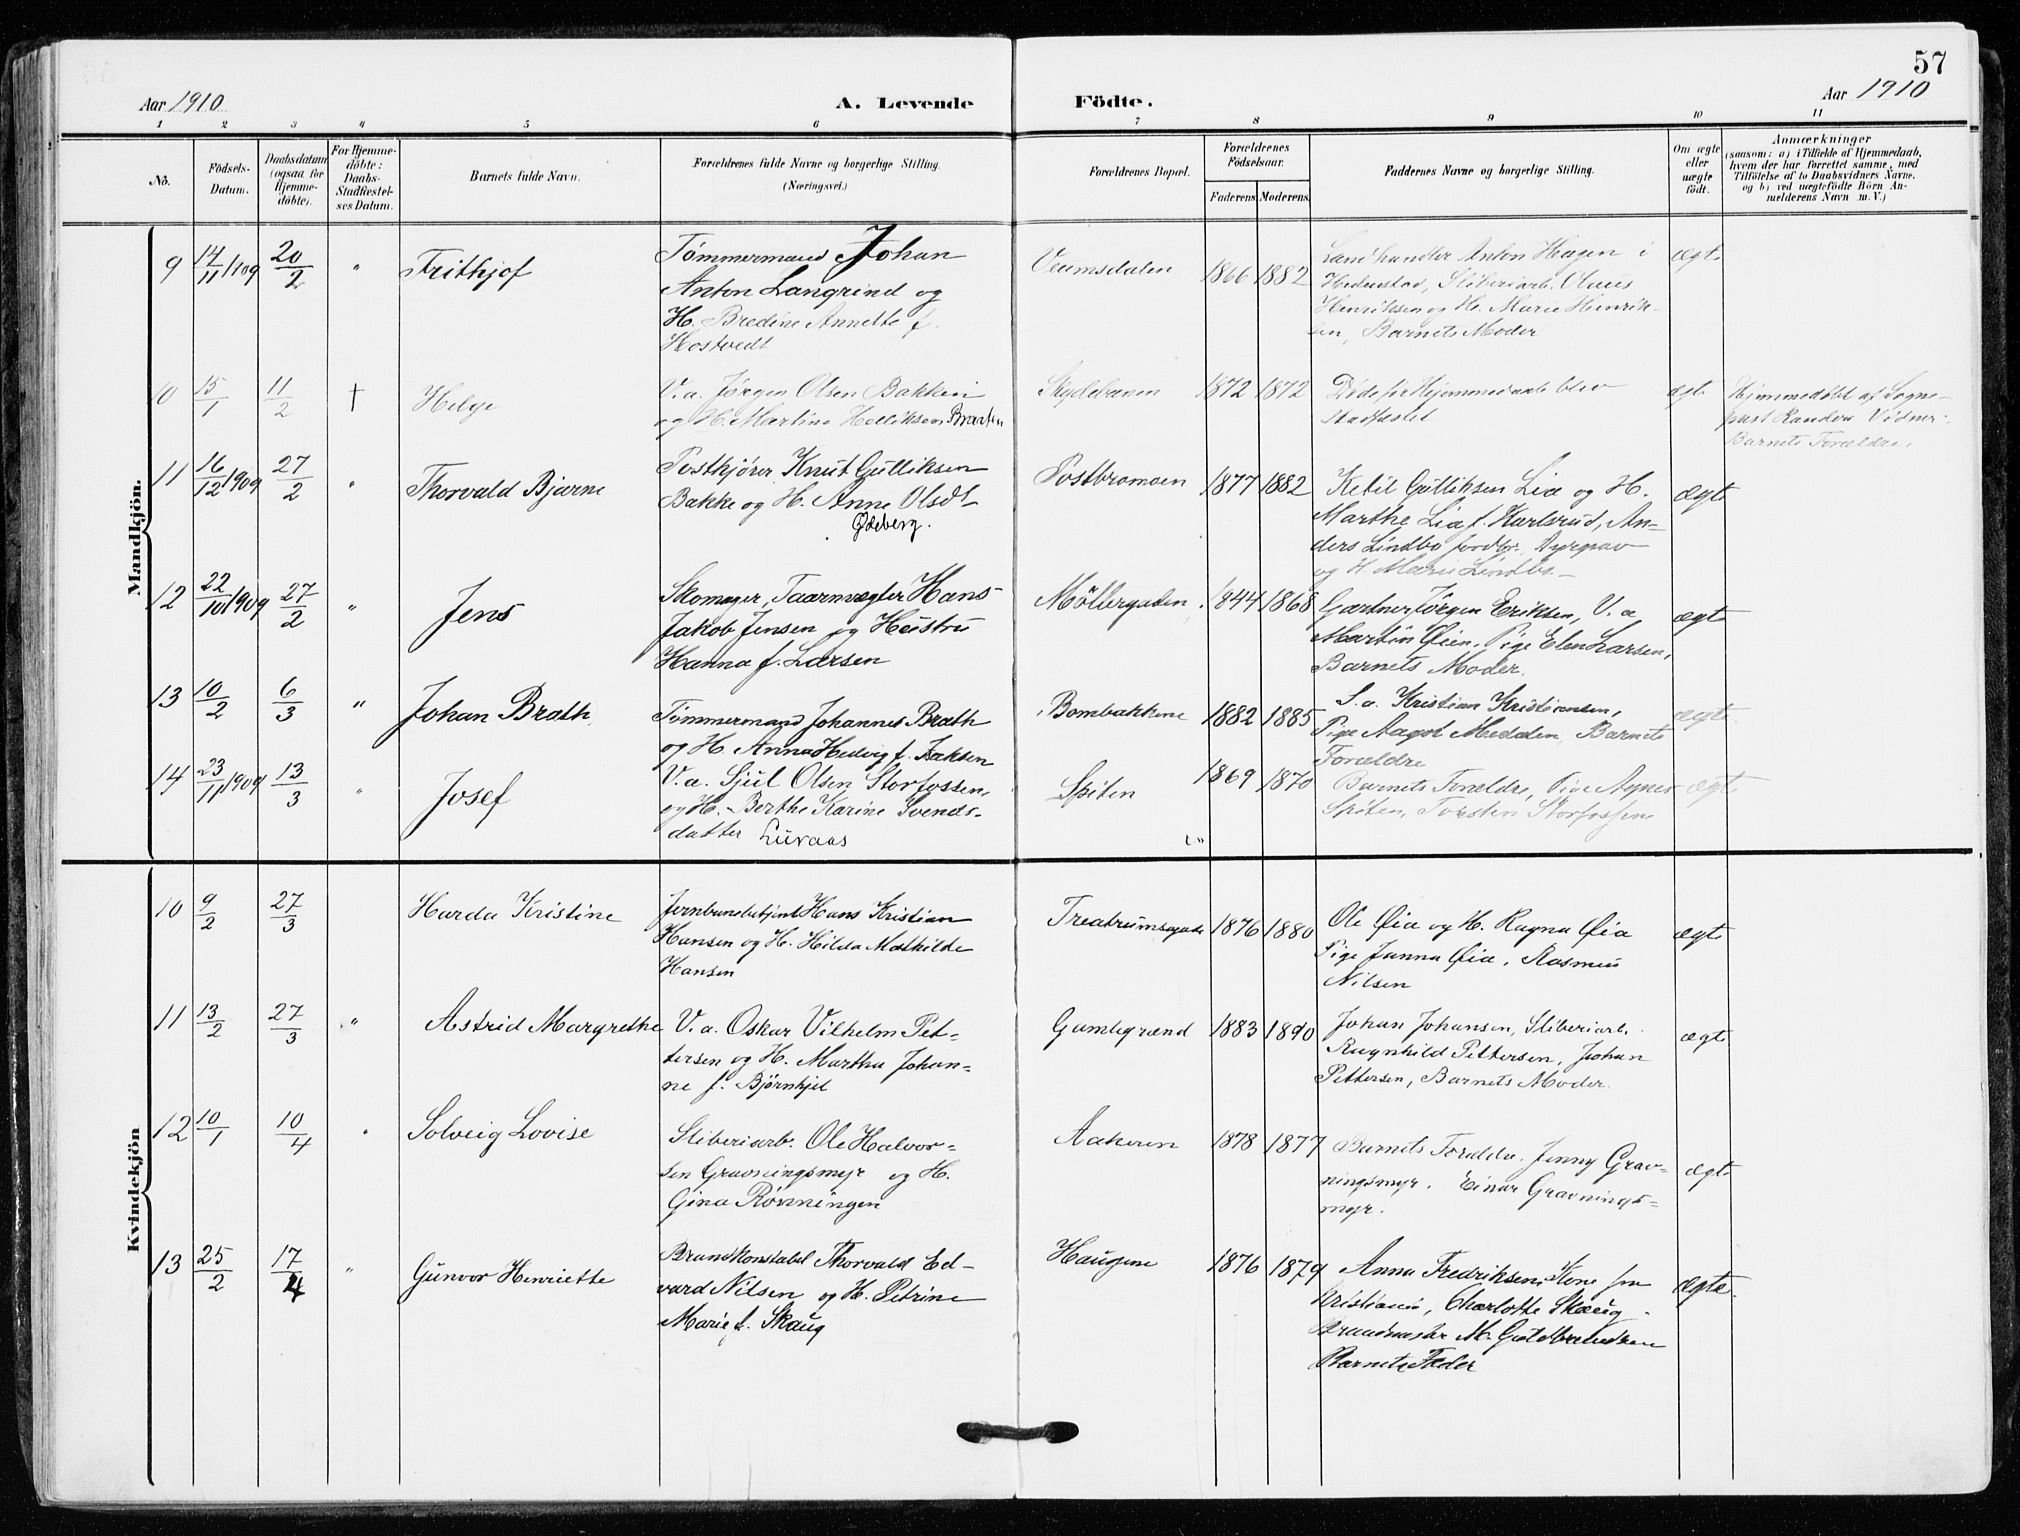 57
Aar 1910
A. Levende
Födte.
Aar 1910
1 2 3 4 5 6 7 8 9 10 11
No.
Födsels-
Datum.
Daabsdatum
(ogsaa for
Hjemme-
döbte).
For Hjemme-
döbte:
Daabs-
Stadfæstel-
ses Datum.
Barnets fulde Navn.
Forældrenes fulde Navne og borgerlige Stilling.
(Næringsvei.)
Forældrenes Bopæl.
Forældrenes
Födselsaar.
Faderens Moderens
Faddernes Navne og borgerlige Stilling.
Om ægte
eller
uægte
födt.
Anmærkninger
(saasom: a) i Tilfælde af Hjemmedaab,
hvem der har forrettet samme, med
Tilföielse af to Daabsvidners Navne.
og b) ved uægtefödte Börn An-
melderens Navn m. V.)
Mandkjön.
9 14/11 1909 20/2 " Frithjof
Tømmermand Johan
Anton Langrind og
H. Bredine Annette f.
Hostvedt
Veumsdalen 1866 1882
Landhandler Anton Hagen i
Hedenstad, Sliberiarb. Olaus
Henriksen og H. Marie Henrik-
sen, Barnets Moder
ægte
10 15/1 11/2 † Helge
V. a. Jørgen Olsen Bakken
og H. Martine Helliksen Braaten
Skydebanen 1872 1872
Døde før Hjemmedaab blev
stadfæstet
ægte
Hjemmedøbt af Sogne-
prest Vidner:
Barnets Forældre.
11 16/12 1909 27/2 " Thorvald Bjarne
Postkjører Knut Gulliksen
Bakke og H. Anne Olsdt
Ødeberg.
Postbromoen 1877 1882
Ketil Gulliksen Lia og H.
Marthe Lia f. Karlsrud, An-
ders Lindbo
og H. Marie Lindbo.
ægte
12 22/10 1909 27/2 " Jens
Skomager, Taarnvægter Hans
Jakob Jensen og Hustru
Hanna f. Larsen
Möllergaden 1844 1868
Gartner Jörgen Eriksen, V. a
Martin Øien, Pige Elen Larsen,
Barnets Moder.
ægte
13 10/2 6/3 " Johan Brath
Tømmermand Johannes Brath
og H. Anna Hedvig f. Isaksen
Bombakkene 1882 1885
S. a. Kristian Kristiansen,
Pige Aagot Medden, Barnets
Forældre
ægte
14 23/11 1909 13/3 " Josef
V. a. Sjul Olsen Storfossen,
og H. Berthe Karine Svends-
datter Luraas
Spiten 1869 1870
Barnets Forældre, Pige Agnes
Spiten, Torsten Storfossen
ægte
Kvindekjön
10 9/2 27/3 Harda Kristine
Jernbanebetjent Hans Kristian
Hansen og H. Hilda Mathilde
Hansen
1876 1880
Ole Øia og H. Ragna Øia
Pige Janna Øia, Rasmus
Nilsen
ægte
11 13/2 27/3 " Astrid Margrethe
V. a. Oskar Vilhelm Pet-
tersen og H. Martha Johan-
ne f. Bjørnkjel
Gamlegrænd 1883 1890
Johan Johansen, Sliberiarb.
Ragnhild Pettersen, Johan
Pettersen, Barnets Moder
ægte
12 10/1 10/4 " Solveig Lovise
Sliberiarb. Ole Halvor-
sen Gravningsmyr og H.
Gina Rønningen
Aakeren 1878 1877
Barnets Forældre, Jenny Grav-
ningsmyr. Einar Gravnings-
myr.
ægte
13 25/2 17/4 " Gunvor Henriette
Brandkonstabel Thorvald Ed-
vard Nilsen og H. Petrine
Marie f. Skaug
Haugene 1876 1879
Anna Fredriksen, Kone fra
Kristiania, Charlotte Skaug
Brandmester M. Guldbrandsen
Barnets Fader
ægte.